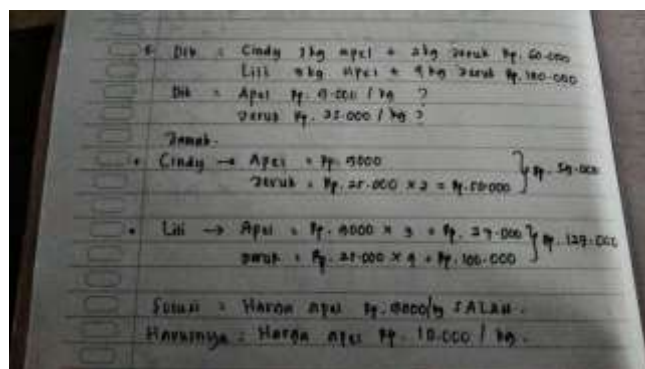 Dik = Cindy 1kg apel + 2kg Jeruk Rp. 60.000
Lili 3kg apel + 4kg Jeruk Rp. 130.000
Dit = Apel Rp. 9.000 / kg ?
Jeruk Rp. 25.000 / kg ?
Jawab.
• Cindy → Apel = Rp. 9000
Jeruk = Rp. 25.000 x 2 = Rp. 50.000 } Rp. 59.000
• Lili → Apel = Rp. 9000 x 3 = Rp. 27.000
Jeruk = Rp. 25.000 x 4 = Rp. 100.000 } Rp. 127.000
Solusi = Harga apel Rp. 9000/kg SALAH.
Harusnya = Harga apel Rp. 10.000 / kg.